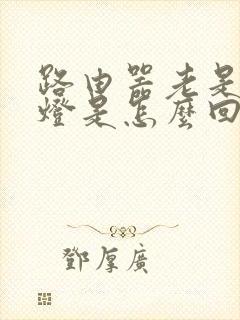 路由器老是
燈是怎麼回
鄧厚廣